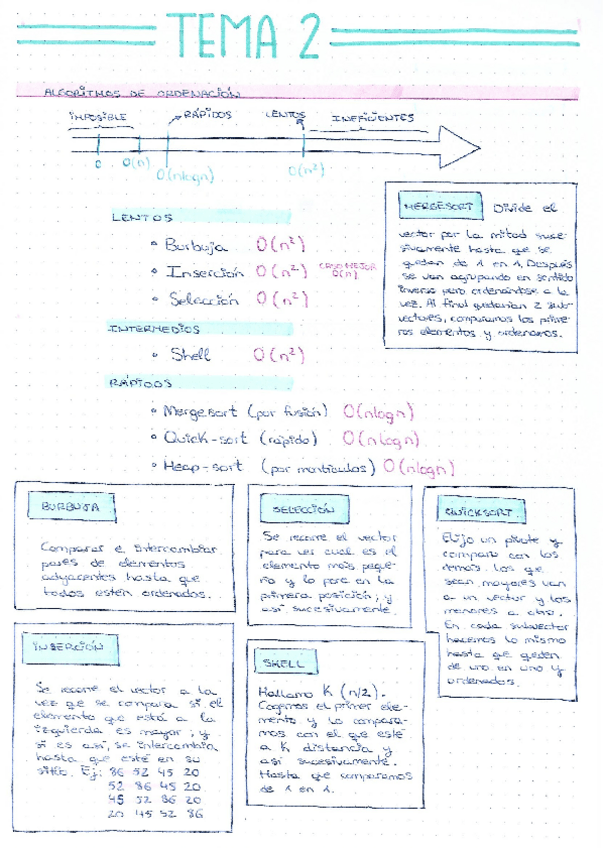 TEMA 2
ALGORITMOS DE ORDENACIÓN
IMPOSIBLE RÁPIDOS LENTOS INEFICIENTES
0 O(n) O(nlogn) O(n²)
MERGESORT Divide el
vector por la mitad suce-
sivamente hasta que se
quedan de 1 en 1. Después
se van agrupando en sentido
inverso pero ordenándose a la
vez. Al final quedarían 2 sub-
vectores, comparamos los prime-
ros elementos y ordenamos.
LENTOS
• Burbuja O(n²)
• Inserción O(n²) CASO MEJOR
O(n)
• Selección O(n²)
INTERMEDIOS
• Shell O(n²)
RÁPIDOS
• Mergesort (por fusión) O(nlogn)
• Quick-sort (rápido) O(nlogn)
• Heap-sort (por montículos) O(nlogn)
BURBUJA
Comparar e intercambiar
pares de elementos
adyacentes hasta que
todos estén ordenados.
SELECCIÓN
Se recorre el vector
para ver cual es el
elemento más peque-
ño y lo pone en la
primera posición, y
así sucesivamente.
QUICKSORT
Elijo un pivote y
comparo con los
demás. Los que
sean mayores van
a un vector y los
menores a otro.
En cada subvector
hacemos lo mismo
hasta que queden
de uno en uno y
ordenados.
INSERCIÓN
Se recorre el vector a la
vez que se compara si el
elemento que está a la
izquierda es mayor, y
si es así, se intercambia
hasta que esté en su
sitio. Ej: 86 52 45 20
52 86 45 20
45 52 86 20
20 45 52 86
SHELL
Hallamo K (n/2).
Cogemos el primer ele-
mento y lo compara-
mos con el que esté
a K distancia y
así sucesivamente.
Hasta que comparamos
de 1 en 1.